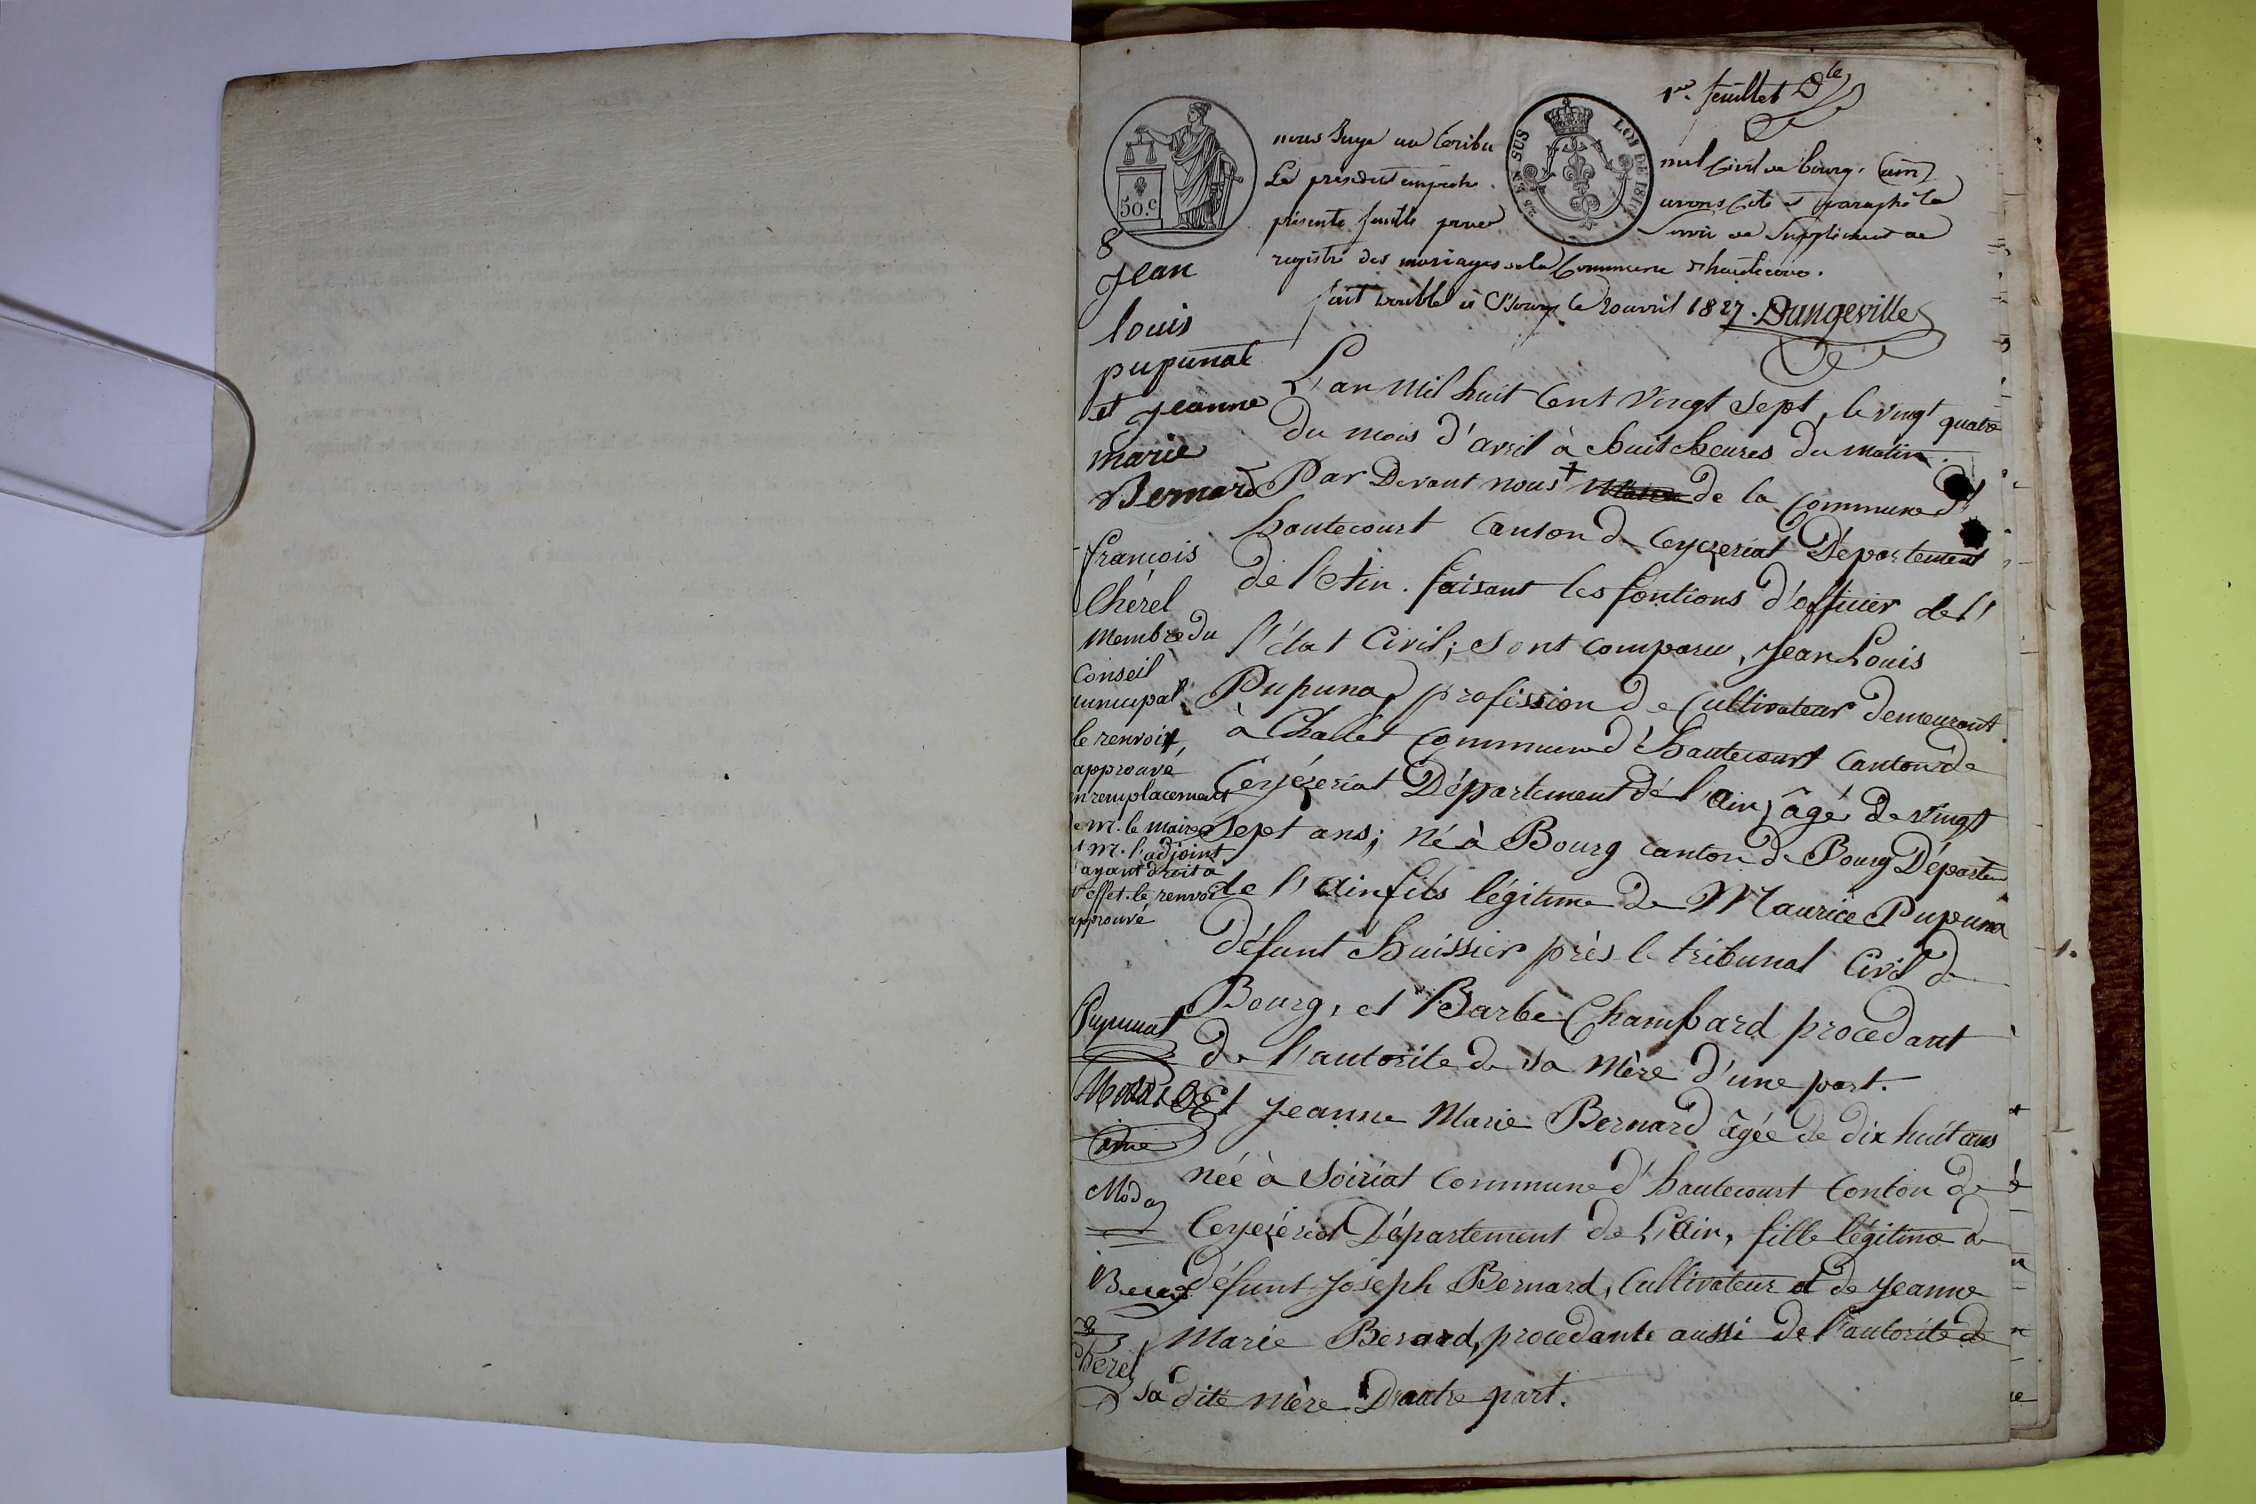 1er feuillet Dle
nous Juge au tribu nal Civil de bourg, (ain)
Le président empêché. avons Coté et paraphé la
présente feuille pour Servir de Supplément au
registre des mariages de la Commune d'hautecour.
fait double à Bourg le 20 avril 1827. Dangeville
50.c
25 EN SUS
LOI DE 1816
8
Jean
louis
pupunat
et Jeanne
marie
Bernard
L'an Mil huit Cent Vingt Sept, le vingt quatre
du mois d'avril à huit heures du matin.
Par Devant nous + Maire de la Commune d'
hautecourt Canton de Ceyzeriat Département
de l'Ain. faisant les fontions d'officier de l'
l'état Civil; Sont comparu, Jean Louis
Pupuna, profission de Cultivateur demeurant
à Challes Commune d'hautecourt Canton de
Ceyzériat Département dé l'ain, âgé de vingt
Sept ans; né à Bourg canton de Bourg Départem
de l'Ain fils légitime de Maurice Pupuna
défunt huissier près le tribunal Civil de
Bourg, et Barbe Chambard procedant
de l'autorite de sa Mère d'une part.
Et Jeanne Marie Bernard âgée de dix huit ans
née à Soiriat Commune d'hautecourt Conton de
Ceyzériat Département de L'Ain, fille légitime de
défunt Joseph Bernard, Cultivateur et de Jeanne
Marie Berard, procedante aussi de l'autorité de
sa dite mère D'autre part.
françois
Chérel
Membre du
Conseil
municipal
le renvoit,
approuvé
en remplacement
de M. le maire
et M. l'adjoint
ayant droit à
l'effet. le renvoi
approuvé
Pupunat
Moda
Chérel